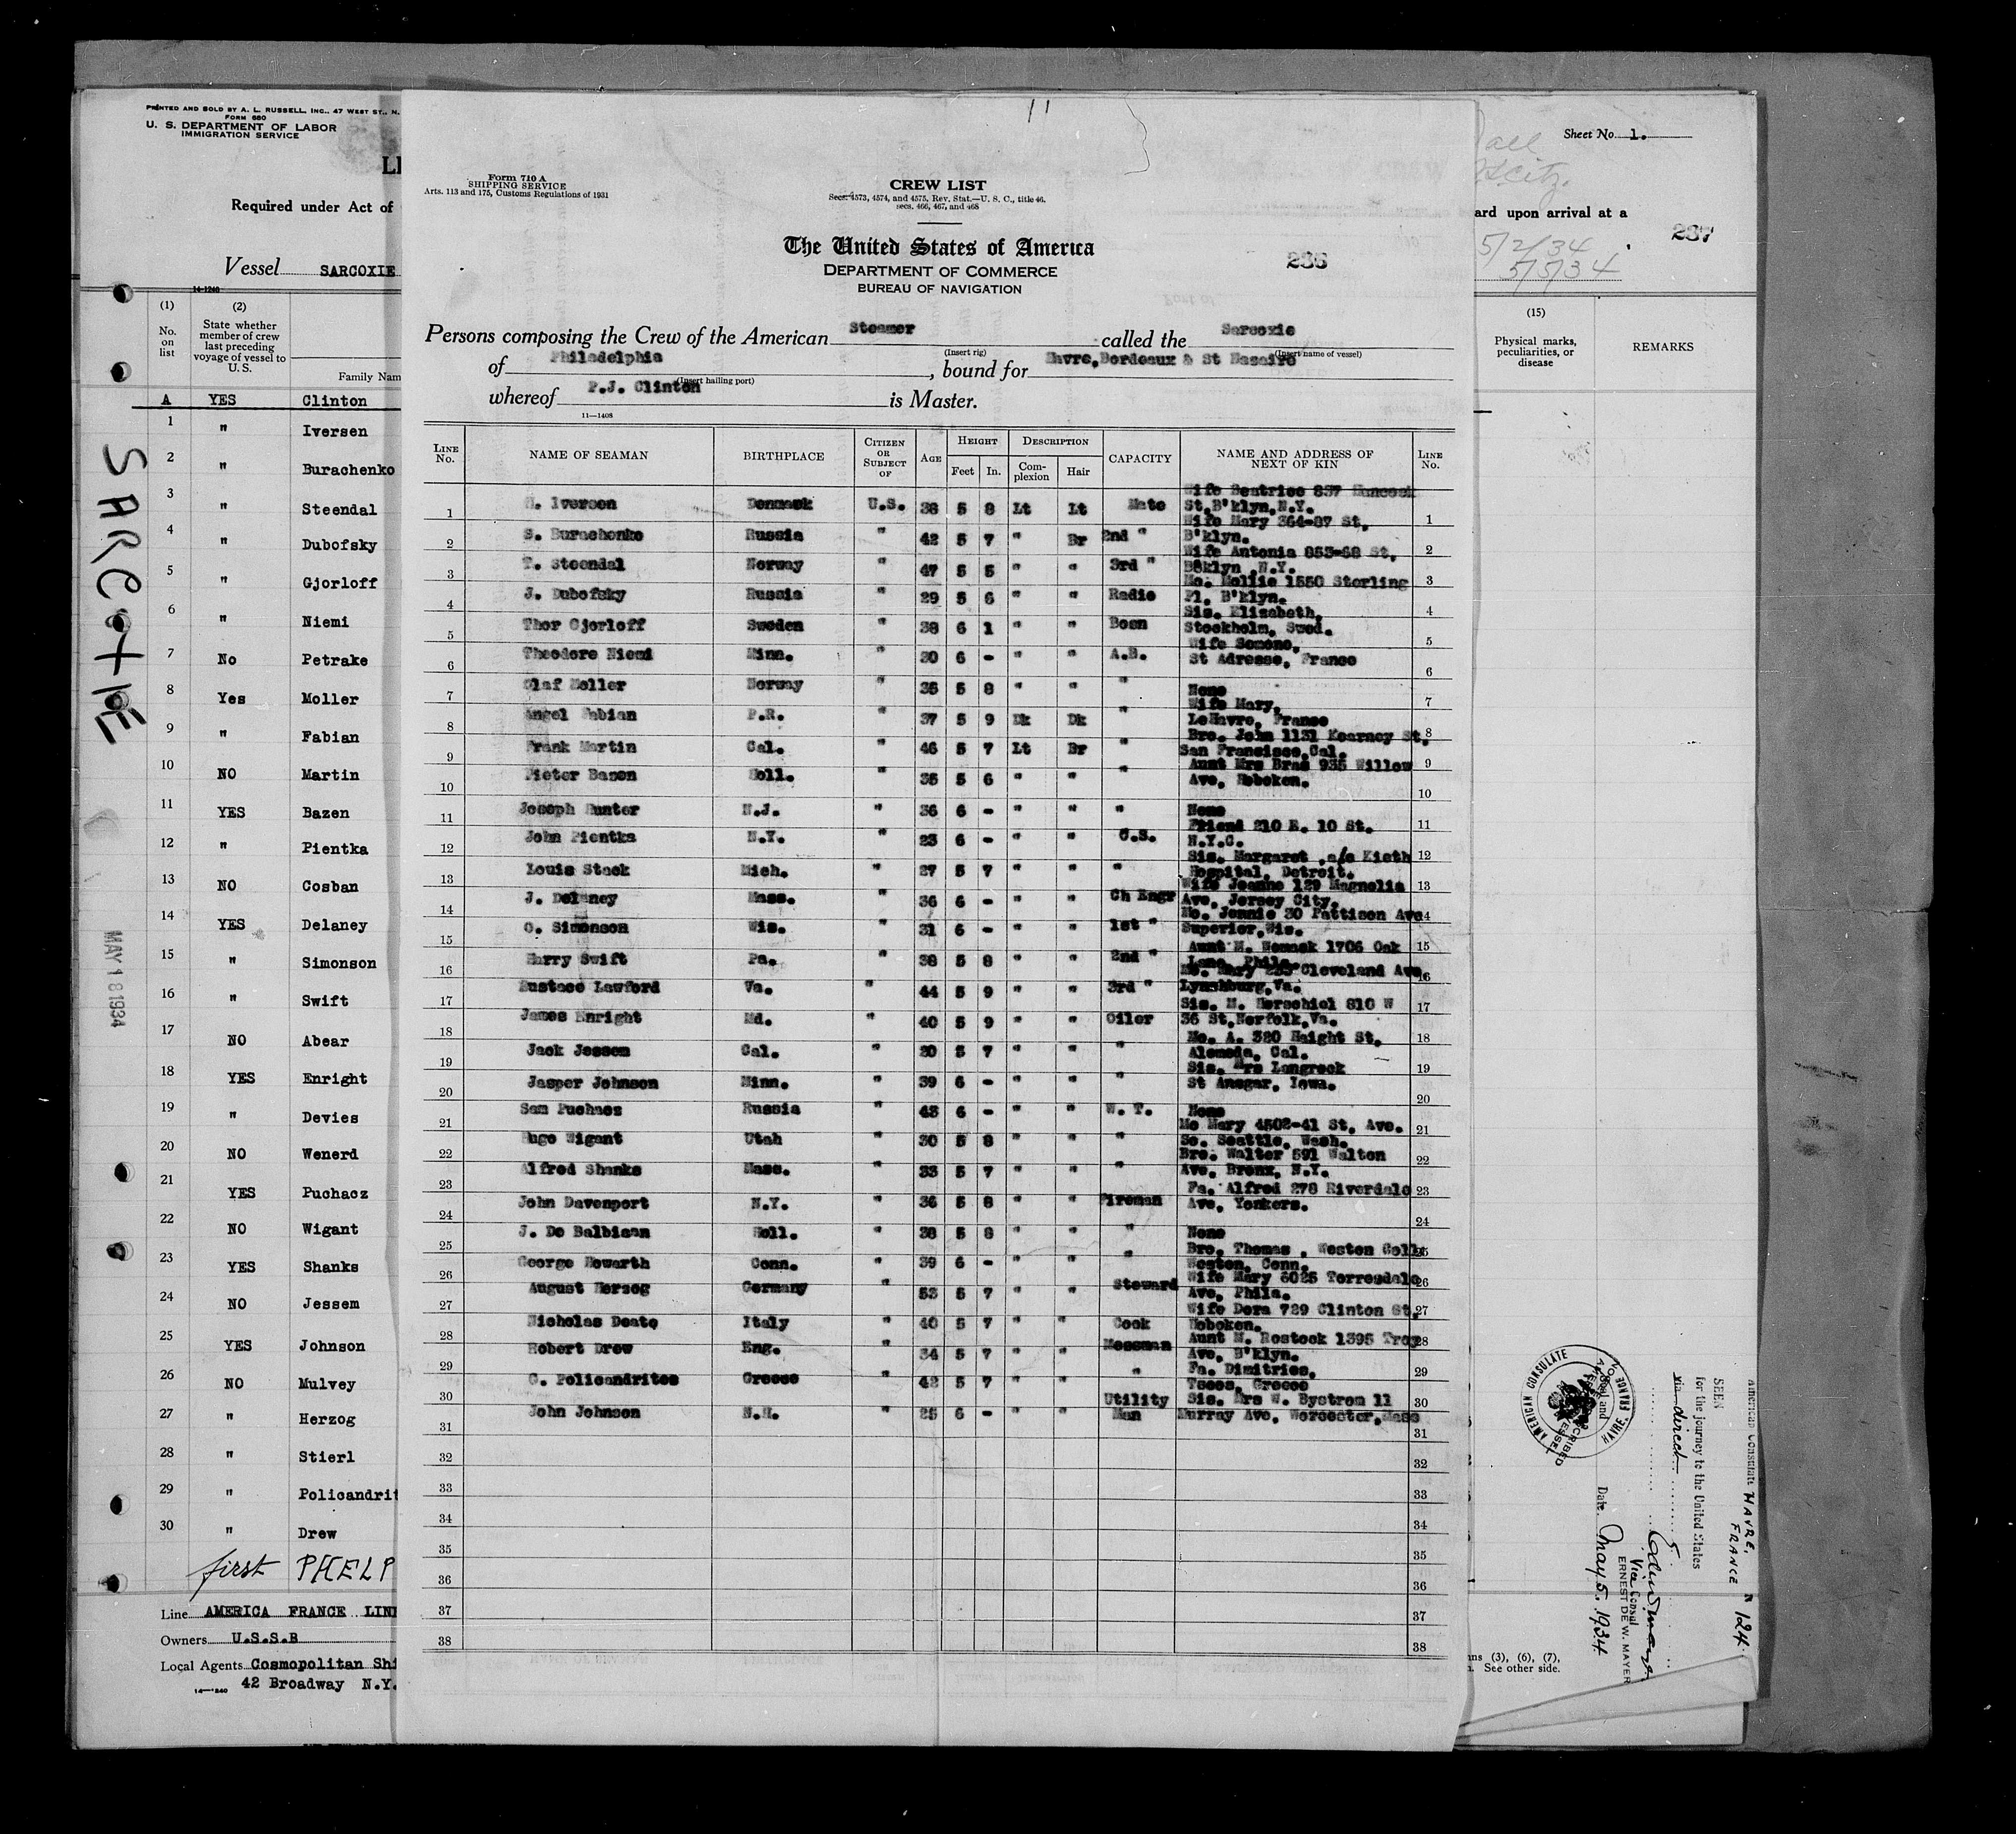 PRINTED AND SOLD BY A. L. RUSSELL, INC., 47 WEST ST., N.
FORM 680
U. S. DEPARTMENT OF LABOR
IMMIGRATION SERVICE
LI
Required under Act of
Vessel SARCOXIE
14-1240
(1) (2)
No. on list
State whether member of crew last preceding voyage of vessel to U. S.
Family Nam
A YES Clinton
1 " Iversen
2 " Burachenko
3 " Steendal
4 " Dubofsky
5 " Gjorloff
6 " Niemi
7 No Petrake
8 Yes Moller
9 " Fabian
10 NO Martin
11 YES Bazen
12 " Pientka
13 NO Cosban
14 YES Delaney
15 " Simonson
16 " Swift
17 NO Abear
18 YES Enright
19 " Devies
20 NO Wenerd
21 YES Puchacz
22 NO Wigant
23 YES Shanks
24 NO Jessem
25 YES Johnson
26 NO Mulvey
27 " Herzog
28 " Stierl
29 " Policandrit
30 " Drew
first PHELP
Line AMERICA FRANCE LIN
Owners U.S.S.B
Local Agents Cosmopolitan Shi
42 Broadway N.Y.
SARCOXIE
MAY 18 1934
11
Form 710 A
SHIPPING SERVICE
Arts. 113 and 175, Customs Regulations of 1931
CREW LIST
Secs. 4573, 4574, and 4575, Rev. Stat.—U. S. C., title 46,
secs. 466, 467, and 468
The United States of America
DEPARTMENT OF COMMERCE
BUREAU OF NAVIGATION
236
Persons composing the Crew of the American Steamer called the Sarcoxie
(Insert rig) (Insert name of vessel)
of Philadelphia, bound for Havre, Bordeaux & St Nazaire
(Insert hailing port)
whereof P.J. Clinton is Master.
11—1408
LINE No. NAME OF SEAMAN BIRTHPLACE CITIZEN OR SUBJECT OF AGE HEIGHT Feet In. DESCRIPTION Complexion Hair CAPACITY NAME AND ADDRESS OF NEXT OF KIN LINE No.
1 Iversen Denmark U.S. 38 5 8 Lt Lt Mate Wife Beatrice 837 Hancock St, B'klyn, N.Y. 1
2 S. Burachenko Russia " 42 5 7 " Br 2nd " Wife Mary 364-87 St, B'klyn. 2
3 T. Steendal Norway " 47 5 5 " " 3rd " Wife Antonia 853-68 St, Bøklyn, N.Y. 3
4 J. Dubofsky Russia " 29 5 6 " " Radio Mo. Mollie 1550 Sterling Pl. B'klyn. 4
5 Thor Gjorloff Sweden " 38 6 1 " " Bosn Sis. Elizabeth, Stockholm, Swed. 5
6 Theodore Niemi Minn. " 30 6 - " " A.B. Wife Semone, St Adresse, France 6
7 Olaf Moller Norway " 35 5 8 " " " None 7
8 Angel Fabian P.R. " 37 5 9 Dk Dk " Wife Mary, LeHavre, France 8
9 Frank Martin Cal. " 46 5 7 Lt Br " Bro. John 1131 Kearney St, San Francisco, Cal. 9
10 Pieter Bazen Holl. " 35 5 6 " " " Aunt Mrs Bras 935 Willow Ave, Hoboken. 10
11 Joseph Hunter N.J. " 36 6 - " " " None 11
12 John Pientka N.Y. " 23 6 - " " O.S. Friend 210 E. 10 St. N.Y.C. 12
13 Louis Stack Mich. " 27 5 7 " " " Sis. Margaret, c/o Kieth Hospital, Detroit. 13
14 J. Delaney Mass. " 36 6 - " " Ch Engr Wife Jeanne 129 Magnolia Ave, Jersey City. 14
15 O. Simonson Wis. " 31 6 - " " 1st " Mo. Jennie 30 Pattison Ave Superior, Wis. 15
16 Harry Swift Pa. " 38 5 8 " " 2nd " Aunt M. 1706 Oak Lane, Phila. 16
17 Eustace Lawford Va. " 44 5 9 " " 3rd " Mo. Mary Cleveland Ave, Lynchburg, Va. 17
18 James Enright Md. " 40 5 9 " " Oiler Sis. M. Herschiel 810 W 36 St, Norfolk, Va. 18
19 Jack Jessem Cal. " 30 5 7 " " " Mo. A. 320 Haight St, Alameda, Cal. 19
20 Jasper Johnson Minn. " 39 6 - " " " Sis. Mrs Langrock St Ansgar, Iowa. 20
21 Sam Puchacz Russia " 43 6 - " " W. T. None 21
22 Hugo Wigant Utah " 30 5 8 " " " Mo Mary 4502-41 St. Ave. So. Seattle, Wash. 22
23 Alfred Shanks Mass. " 33 5 7 " " " Bro. Walter 591 Walton Ave, Bronx, N.Y. 23
24 John Davenport N.Y. " 36 5 8 " " Fireman Fa. Alfred 278 Riverdale Ave, Yonkers. 24
25 J. De Balbiaan Holl. " 38 5 8 " " " None 25
26 George Howarth Conn. " 39 6 - " " " Bro. Thomas, Weston Coll, Weston, Conn. 26
27 August Herzog Germany " 53 5 7 " " Steward Wife Mary 6025 Torresdale Ave, Phila. 27
28 Nicholas Deato Italy " 40 5 7 " " Cook Wife Dora 729 Clinton St, Hoboken. 28
29 Robert Drew Eng. " 34 5 7 " " Messman Aunt M. Rostock 1395 Troy Ave, B'klyn. 29
30 C. Policandrites Greece " 42 5 7 " " " Fa. Dimitries, Greece 30
31 John Johnson N.H. " 25 6 - " " Utility Man Sis. Mrs W. Bystrom 11 Murray Ave, Worcester, Mass 31
32 32
33 33
34 34
35 35
36 36
37 37
38 38
Sheet No. 1.
all
ard upon arrival at a
237
5/2/34
5/5/34
(15)
Physical marks, peculiarities, or disease
REMARKS
AMERICAN CONSULATE
HAVRE, FRANCE
American Consulate HAVRE, FRANCE
No 124
SEEN
for the journey to the United States
via direct
Vice Consul
ERNEST DE W. MAYER
Date May 5. 1934
ns (3), (6), (7),
See other side.